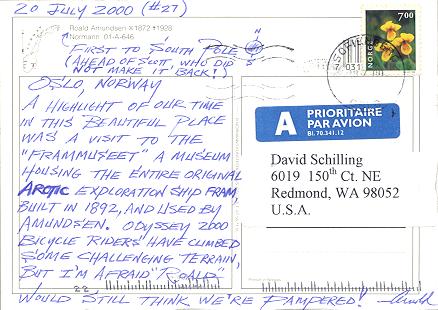 20 JULY 2000 (#27)
Roald Amundsen ×1872 †1928
Normann 01-A-646
FIRST TO SOUTH POLE
(AHEAD OF SCOTT, WHO DID
NOT MAKE IT BACK!)
OSLO, NORWAY
A HIGHLIGHT OF OUR TIME
IN THIS BEAUTIFUL PLACE
WAS A VISIT TO THE
"FRAMMUSEET" A MUSEUM
HOUSING THE ENTIRE ORIGINAL
ARCTIC EXPLORATION SHIP FRAM,
BUILT IN 1892, AND USED BY
AMUNDSEN. ODYSSEY 2000
BICYCLE RIDERS HAVE CLIMBED
SOME CHALLENGING TERRAIN,
BUT I'M AFRAID "ROALD"
WOULD STILL THINK WE'RE PAMPERED!
22
N
7.00
NORGE
A PRIORITAIRE
PAR AVION
Bl. 70.341.12
David Schilling
6019 150th Ct. NE
Redmond, WA 98052
U.S.A.